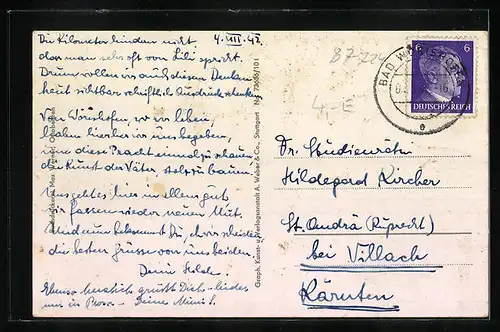 Die Kilometer hindern nicht 4. VIII. 42.
das man sehr oft von Lili spricht.
Drum wollen wir auch diesem Denken
heut sichtbar schriftlich Ausdruck schenken
Von Wörishofen, wo wir leben,
haben hierher wir uns begeben,
um diese Pracht einmal zu schauen
die Kunst der Väter, so zu bauen.
Uns geht es hier in allem gut
wir fassen wieder neuen Mut.
Und nun bekommst Du, eh wir scheiden
die besten Grüsse von uns beiden.
Deine
Ebenso herzlich grüßt Dich
uns in Prosa. Deine
Graph. Kunst- u. Verlagsanstalt A. Weber & Co., Stuttgart
BAD
6 6
DEUTSCHES REICH
e
4,-E
Dr. Studienrätin
Hildegard Kircher
St. Andrä (Ruprecht)
bei Villach
Kärnten